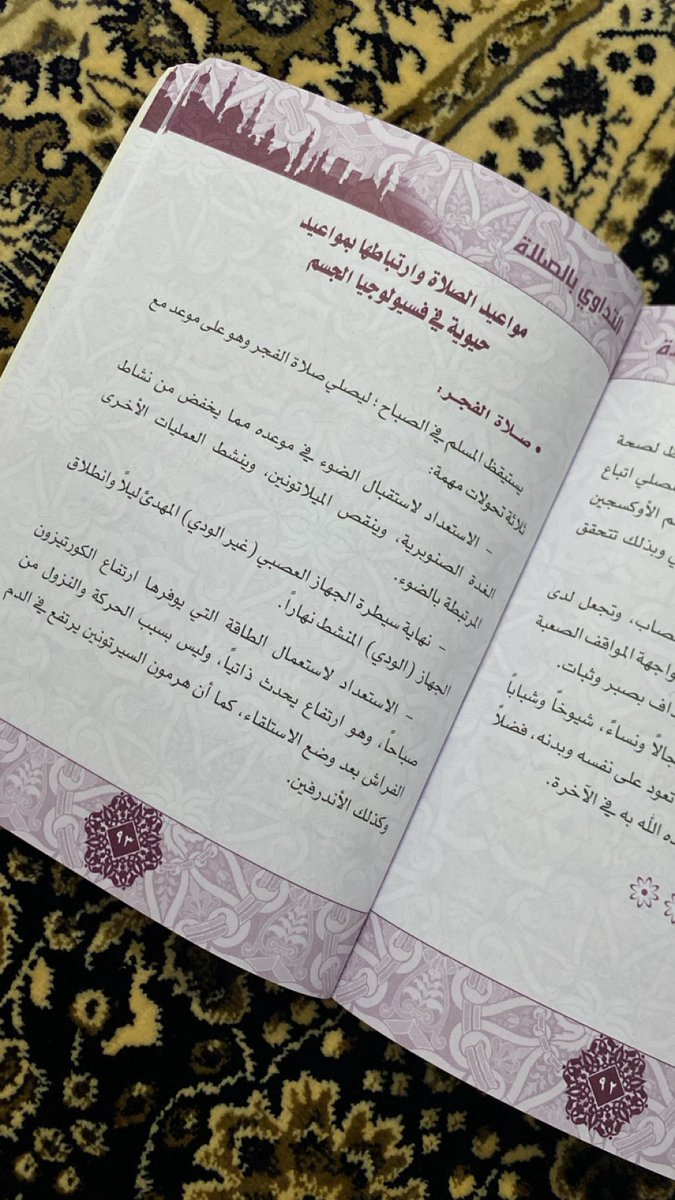 لصحة
اتباع
الأوكسجين
وبذلك تتحقق
وتجعل لدى
المواقف الصعبة
بصبر وثبات.
ونساءً، شيوخًا وشباباً
تعود على نفسه وبدنه، فضلاً
الله به في الآخرة.
٩٢
التداوي بالصلاة
مواعيد الصلاة وارتباطها بمواعيد
حيوية في فسيولوجيا الجسم
• صلاة الفجر:
يستيقظ المسلم في الصباح؛ ليصلي صلاة الفجر وهو على موعد مع
ثلاثة تحولات مهمة:
- الاستعداد لاستقبال الضوء في موعده مما يخفض من نشاط
الغدة الصنوبرية، وينقص الميلاتونين، وينشط العمليات الأخرى
المرتبطة بالضوء.
- نهاية سيطرة الجهاز العصبي (غير الودي) المهدئ ليلاً وانطلاق
الجهاز (الودي) المنشط نهاراً.
- الاستعداد لاستعمال الطاقة التي يوفرها ارتفاع الكورتيزون
صباحاً، وهو ارتفاع يحدث ذاتياً، وليس بسبب الحركة والنزول من
الفراش بعد وضع الاستلقاء، كما أن هرمون السيرتونين يرتفع في الدم
وكذلك الأندرفين.
٩٣